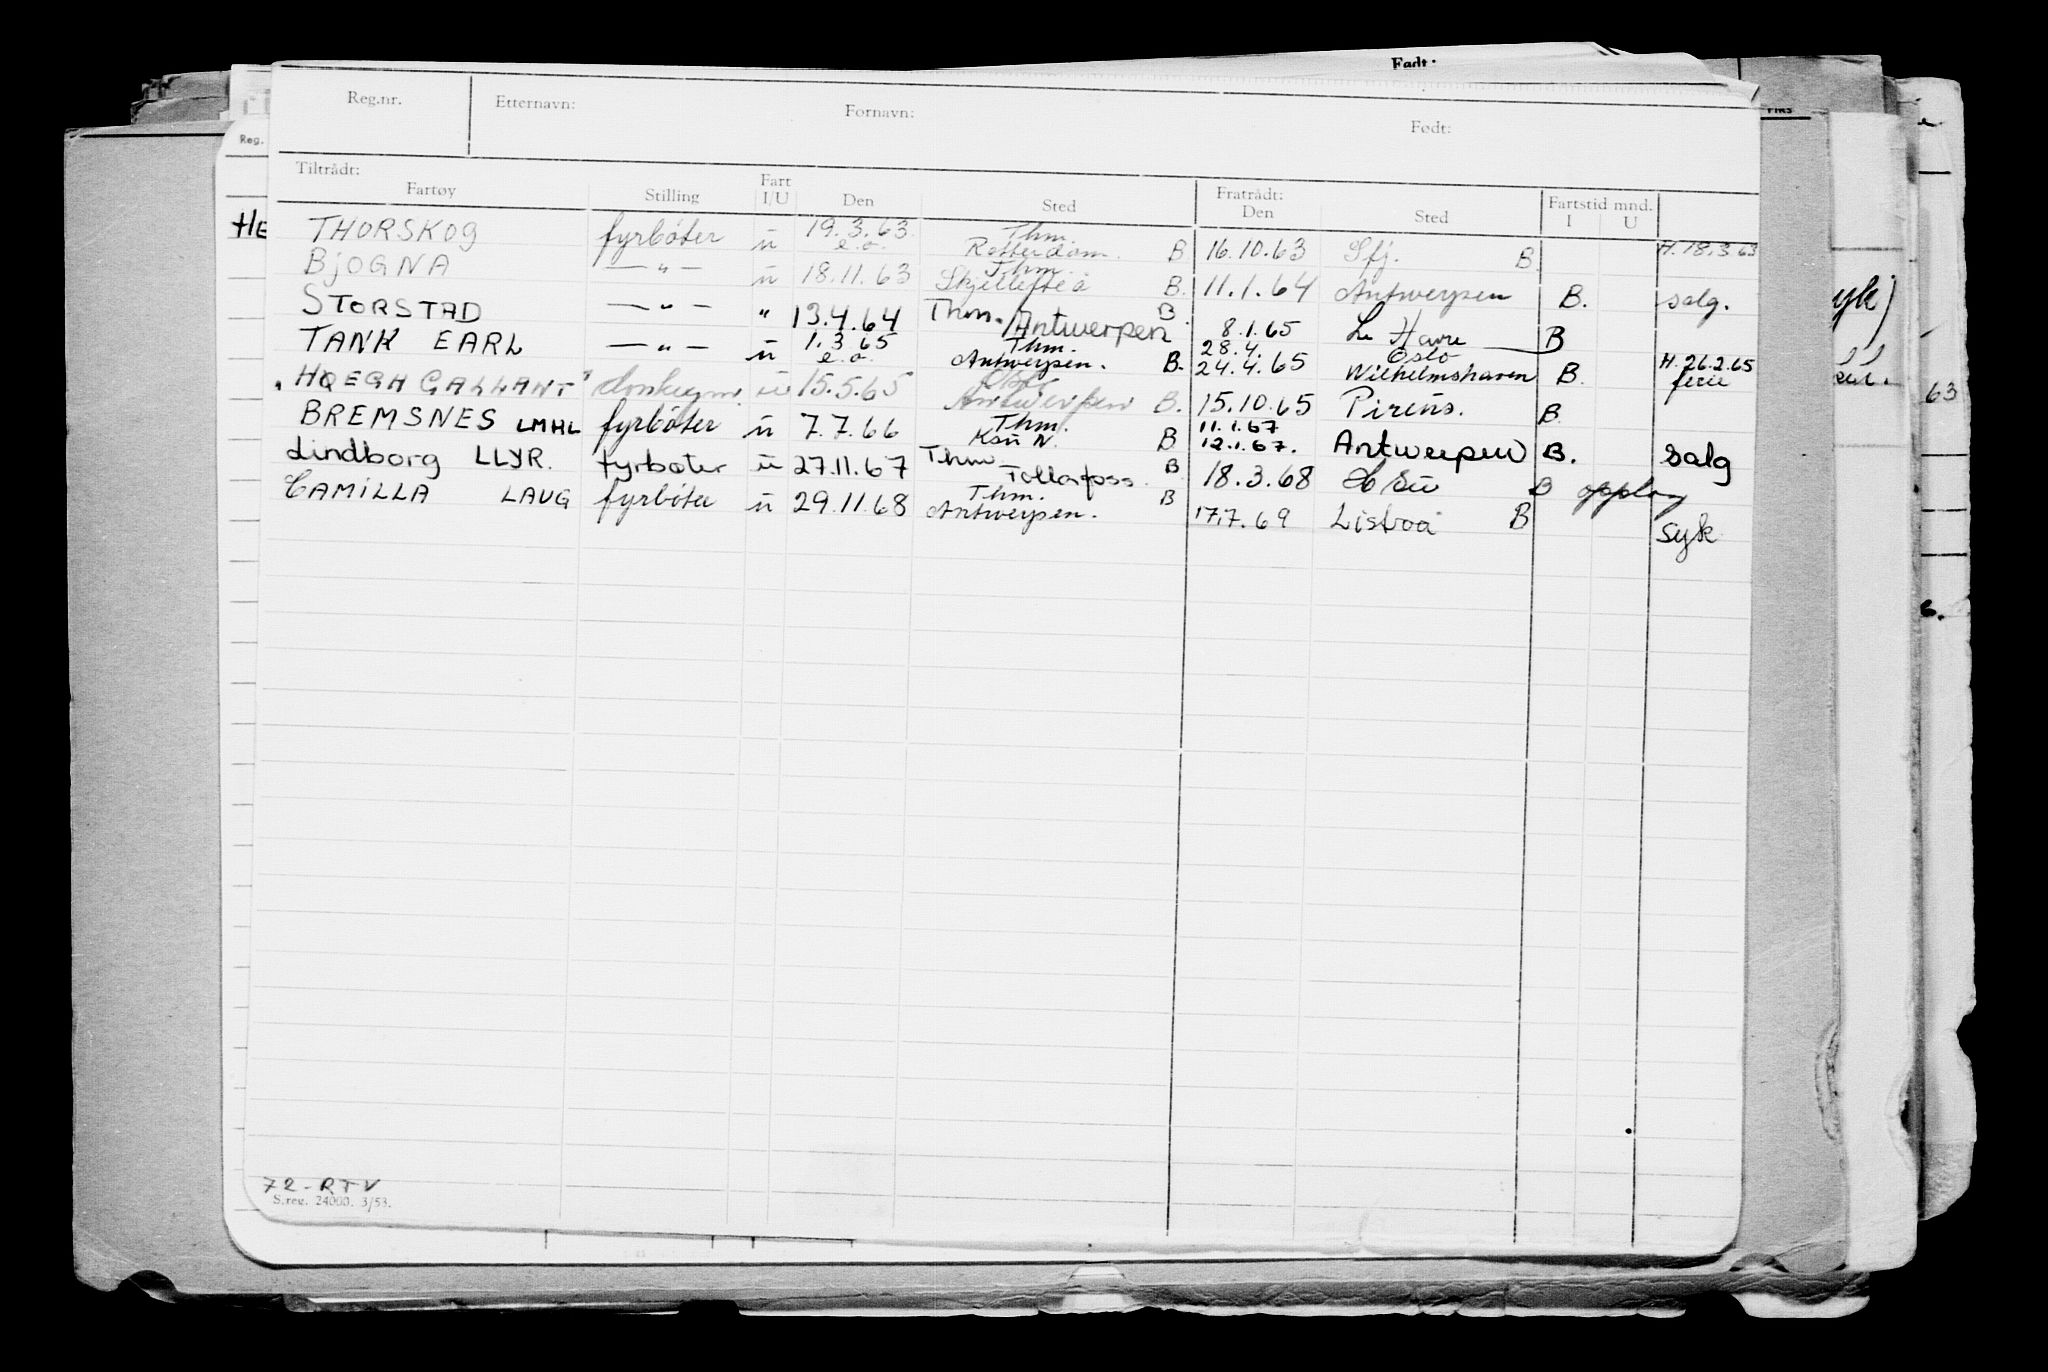 Født:
Reg.nr. Etternavn: Fornavn: Født:
Tiltrådt: Fratrådt:
Fartøy Stilling Fart I/U Den Sted Den Sted Fartstid mnd. I U
HE THORSKOG fyrbøter u 19.3.63. e.o. Thm. Rotterdam. B 16.10.63 Sfj. B. H. 18.3.63
BJOGNA — " — u 18.11.63 Thm. Skjellefteå B. 11.1.64 Antwerpen B. salg.
STORSTAD — " — " 13.4.64 Thm. / Antwerpen B. 8.1.65 Le Havre B
TANK EARL — " — u 1.3.65 e.o. Thm. Antwerpen. B. 28.4. 24.4.65 Oslo Wilhelmshaven B. H. 26.2.65 ferie
"HØEGH GALLANT" donkeym. u 15.5.65 Oslo Antwerpen B. 15.10.65 Pireus. B.
BREMSNES LMHL fyrbøter u 7.7.66 Thm. Ksu N. B 11.1.67 12.1.67. Antwerpen B. salg
Lindborg LLYR. fyrbøter u 27.11.67 Thm. Follafoss B 18.3.68 B opplag
CAMILLA LAUG fyrbøter u 29.11.68 Thm. Antwerpen. B 17.7.69 Lisboa B syk
72-RTV
S.reg. 24000. 3/53.
Reg.
yk)
63